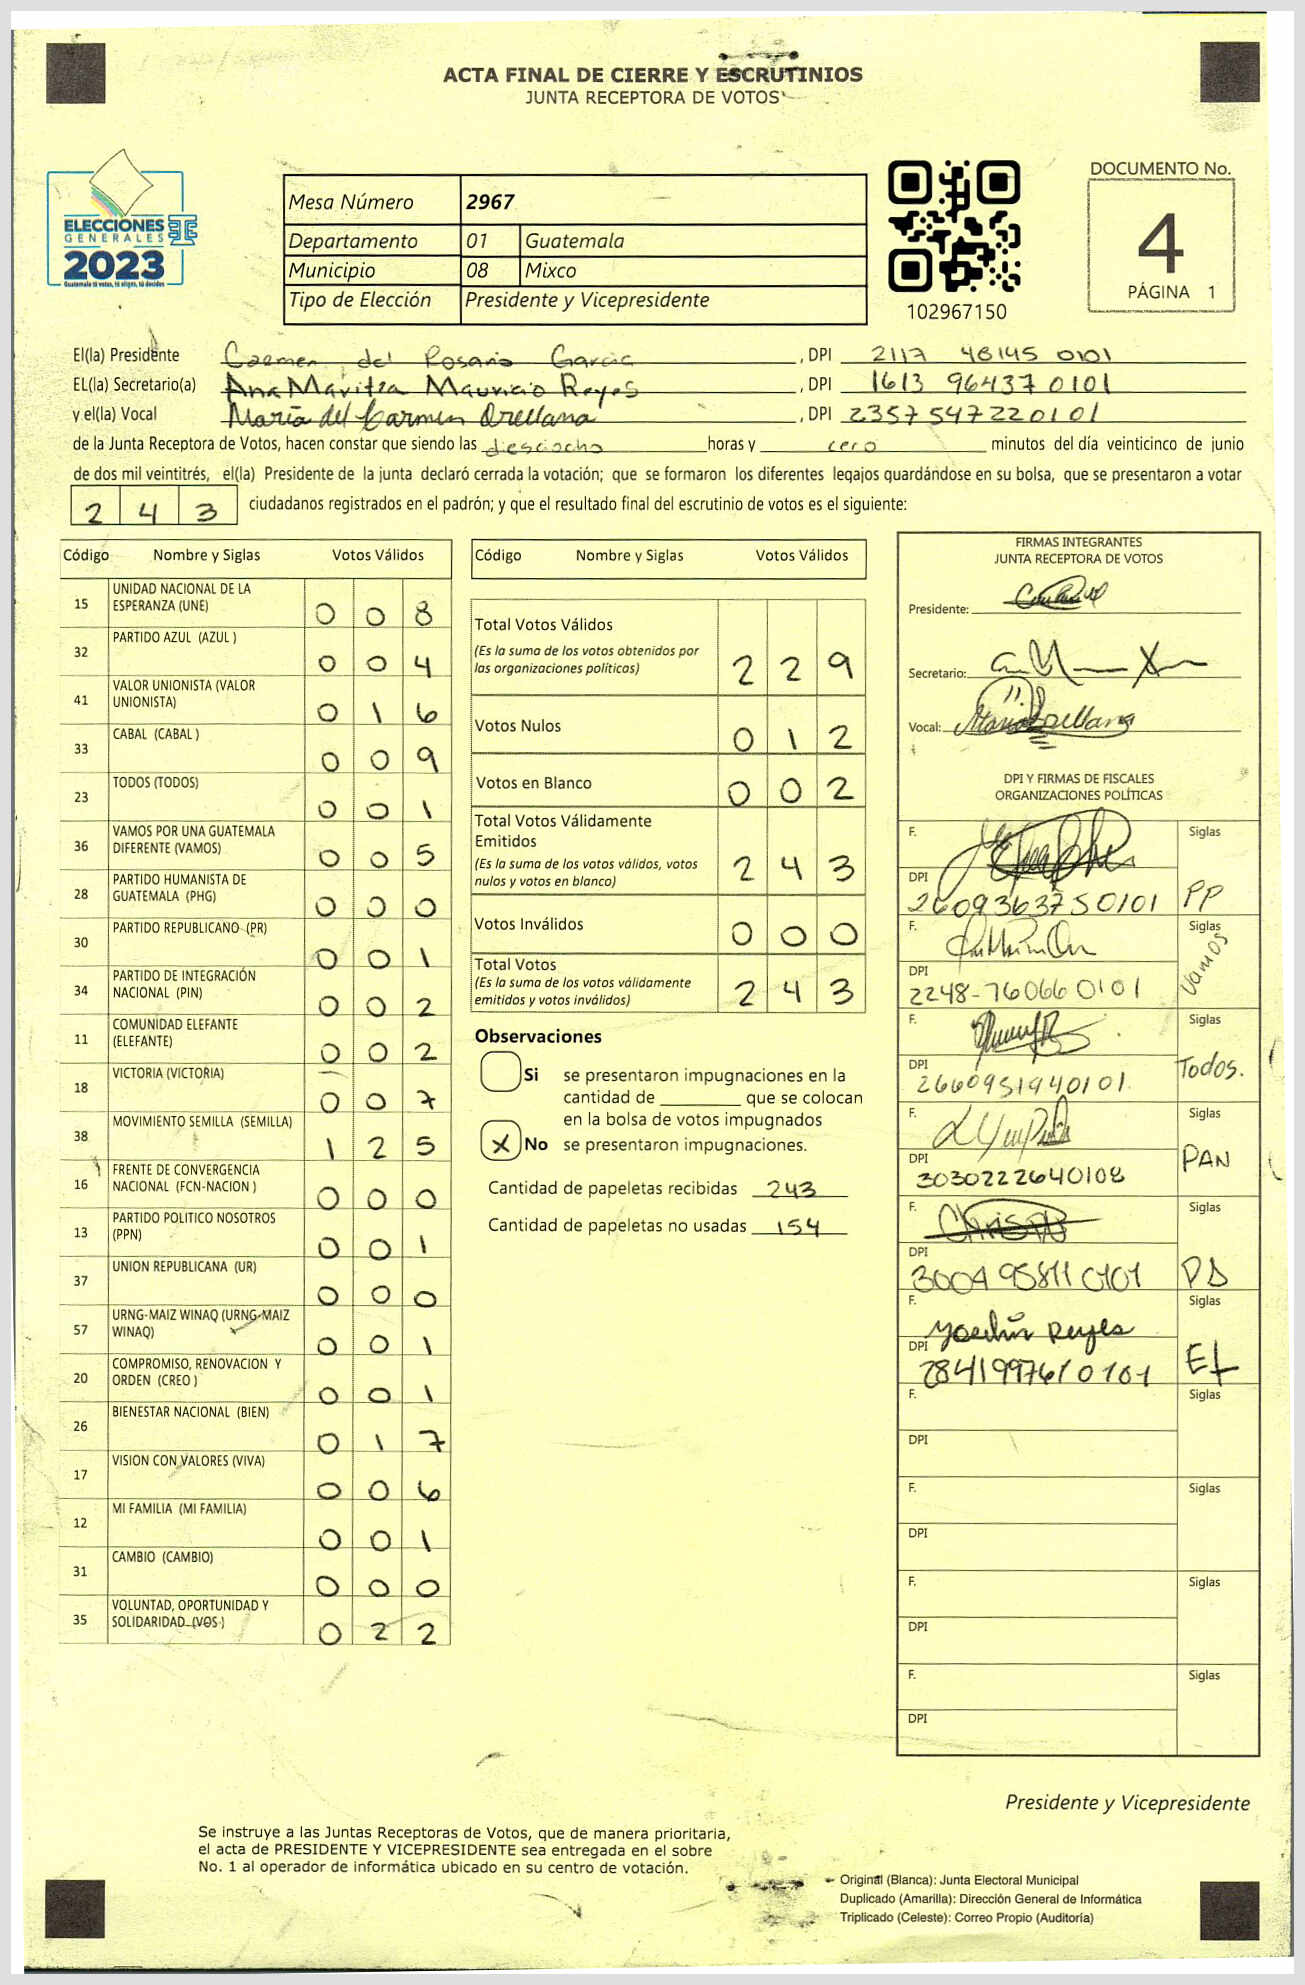 ACTA FINAL DE CIERRE Y ESCRUTINIOS
JUNTA RECEPTORA DE VOTOS
ELECCIONES
GENERALES
2023
Guatemala tú votas, tú eliges, tú decides
Mesa Número 2967
Departamento 01 Guatemala
Municipio 08 Mixco
Tipo de Elección Presidente y Vicepresidente
102967150
DOCUMENTO No.
4
PÁGINA 1
El(la) Presidente Carmen del Rosario García , DPI 2117 48145 0101
EL(la) Secretario(a) Ana Maritza Mauricio Reyes , DPI 1613 96437 0101
y el(la) Vocal María del Carmen Orellana , DPI 2357547220101
de la Junta Receptora de Votos, hacen constar que siendo las dieciocho horas y cero minutos del día veinticinco de junio
de dos mil veintitrés, el(la) Presidente de la junta declaró cerrada la votación; que se formaron los diferentes legajos guardándose en su bolsa, que se presentaron a votar
2 4 3 ciudadanos registrados en el padrón; y que el resultado final del escrutinio de votos es el siguiente:
Código Nombre y Siglas Votos Válidos
15 UNIDAD NACIONAL DE LA ESPERANZA (UNE) 0 0 8
32 PARTIDO AZUL (AZUL ) 0 0 4
41 VALOR UNIONISTA (VALOR UNIONISTA) 0 1 6
33 CABAL (CABAL ) 0 0 9
23 TODOS (TODOS) 0 0 1
36 VAMOS POR UNA GUATEMALA DIFERENTE (VAMOS) 0 0 5
28 PARTIDO HUMANISTA DE GUATEMALA (PHG) 0 0 0
30 PARTIDO REPUBLICANO (PR) 0 0 1
34 PARTIDO DE INTEGRACIÓN NACIONAL (PIN) 0 0 2
11 COMUNIDAD ELEFANTE (ELEFANTE) 0 0 2
18 VICTORIA (VICTORIA) 0 0 7
38 MOVIMIENTO SEMILLA (SEMILLA) 1 2 5
16 FRENTE DE CONVERGENCIA NACIONAL (FCN-NACION ) 0 0 0
13 PARTIDO POLITICO NOSOTROS (PPN) 0 0 1
37 UNION REPUBLICANA (UR) 0 0 0
57 URNG-MAIZ WINAQ (URNG-MAIZ WINAQ) 0 0 1
20 COMPROMISO, RENOVACION Y ORDEN (CREO ) 0 0 1
26 BIENESTAR NACIONAL (BIEN) 0 1 7
17 VISION CON VALORES (VIVA) 0 0 6
12 MI FAMILIA (MI FAMILIA) 0 0 1
31 CAMBIO (CAMBIO) 0 0 0
35 VOLUNTAD, OPORTUNIDAD Y SOLIDARIDAD (VOS ) 0 2 2
Código Nombre y Siglas Votos Válidos
Total Votos Válidos 2 2 9
(Es la suma de los votos obtenidos por
las organizaciones políticas)
Votos Nulos 0 1 2
Votos en Blanco 0 0 2
Total Votos Válidamente
Emitidos 2 4 3
(Es la suma de los votos válidos, votos
nulos y votos en blanco)
Votos Inválidos 0 0 0
Total Votos 2 4 3
(Es la suma de los votos válidamente
emitidos y votos inválidos)
Observaciones
Si se presentaron impugnaciones en la
cantidad de ________ que se colocan
en la bolsa de votos impugnados
X No se presentaron impugnaciones.
Cantidad de papeletas recibidas 243
Cantidad de papeletas no usadas 154
FIRMAS INTEGRANTES
JUNTA RECEPTORA DE VOTOS
Presidente:
Secretario:
Vocal: María Orellana
DPI Y FIRMAS DE FISCALES
ORGANIZACIONES POLÍTICAS
F. Siglas
DPI 2609363750101 PP
F. Siglas
DPI 2248-76066 0101 Vamos
F. Siglas
DPI 2660951940101 Todos.
F. Siglas
DPI 3030222640108 PAN
F. Siglas
DPI 3004958110101
F. Yoselin Reyes Siglas
DPI 2841997610101
F. Siglas
DPI
F. Siglas
DPI
F. Siglas
DPI
F. Siglas
DPI
Presidente y Vicepresidente
Se instruye a las Juntas Receptoras de Votos, que de manera prioritaria,
el acta de PRESIDENTE Y VICEPRESIDENTE sea entregada en el sobre
No. 1 al operador de informática ubicado en su centro de votación.
Original (Blanca): Junta Electoral Municipal
Duplicado (Amarilla): Dirección General de Informática
Triplicado (Celeste): Correo Propio (Auditoría)